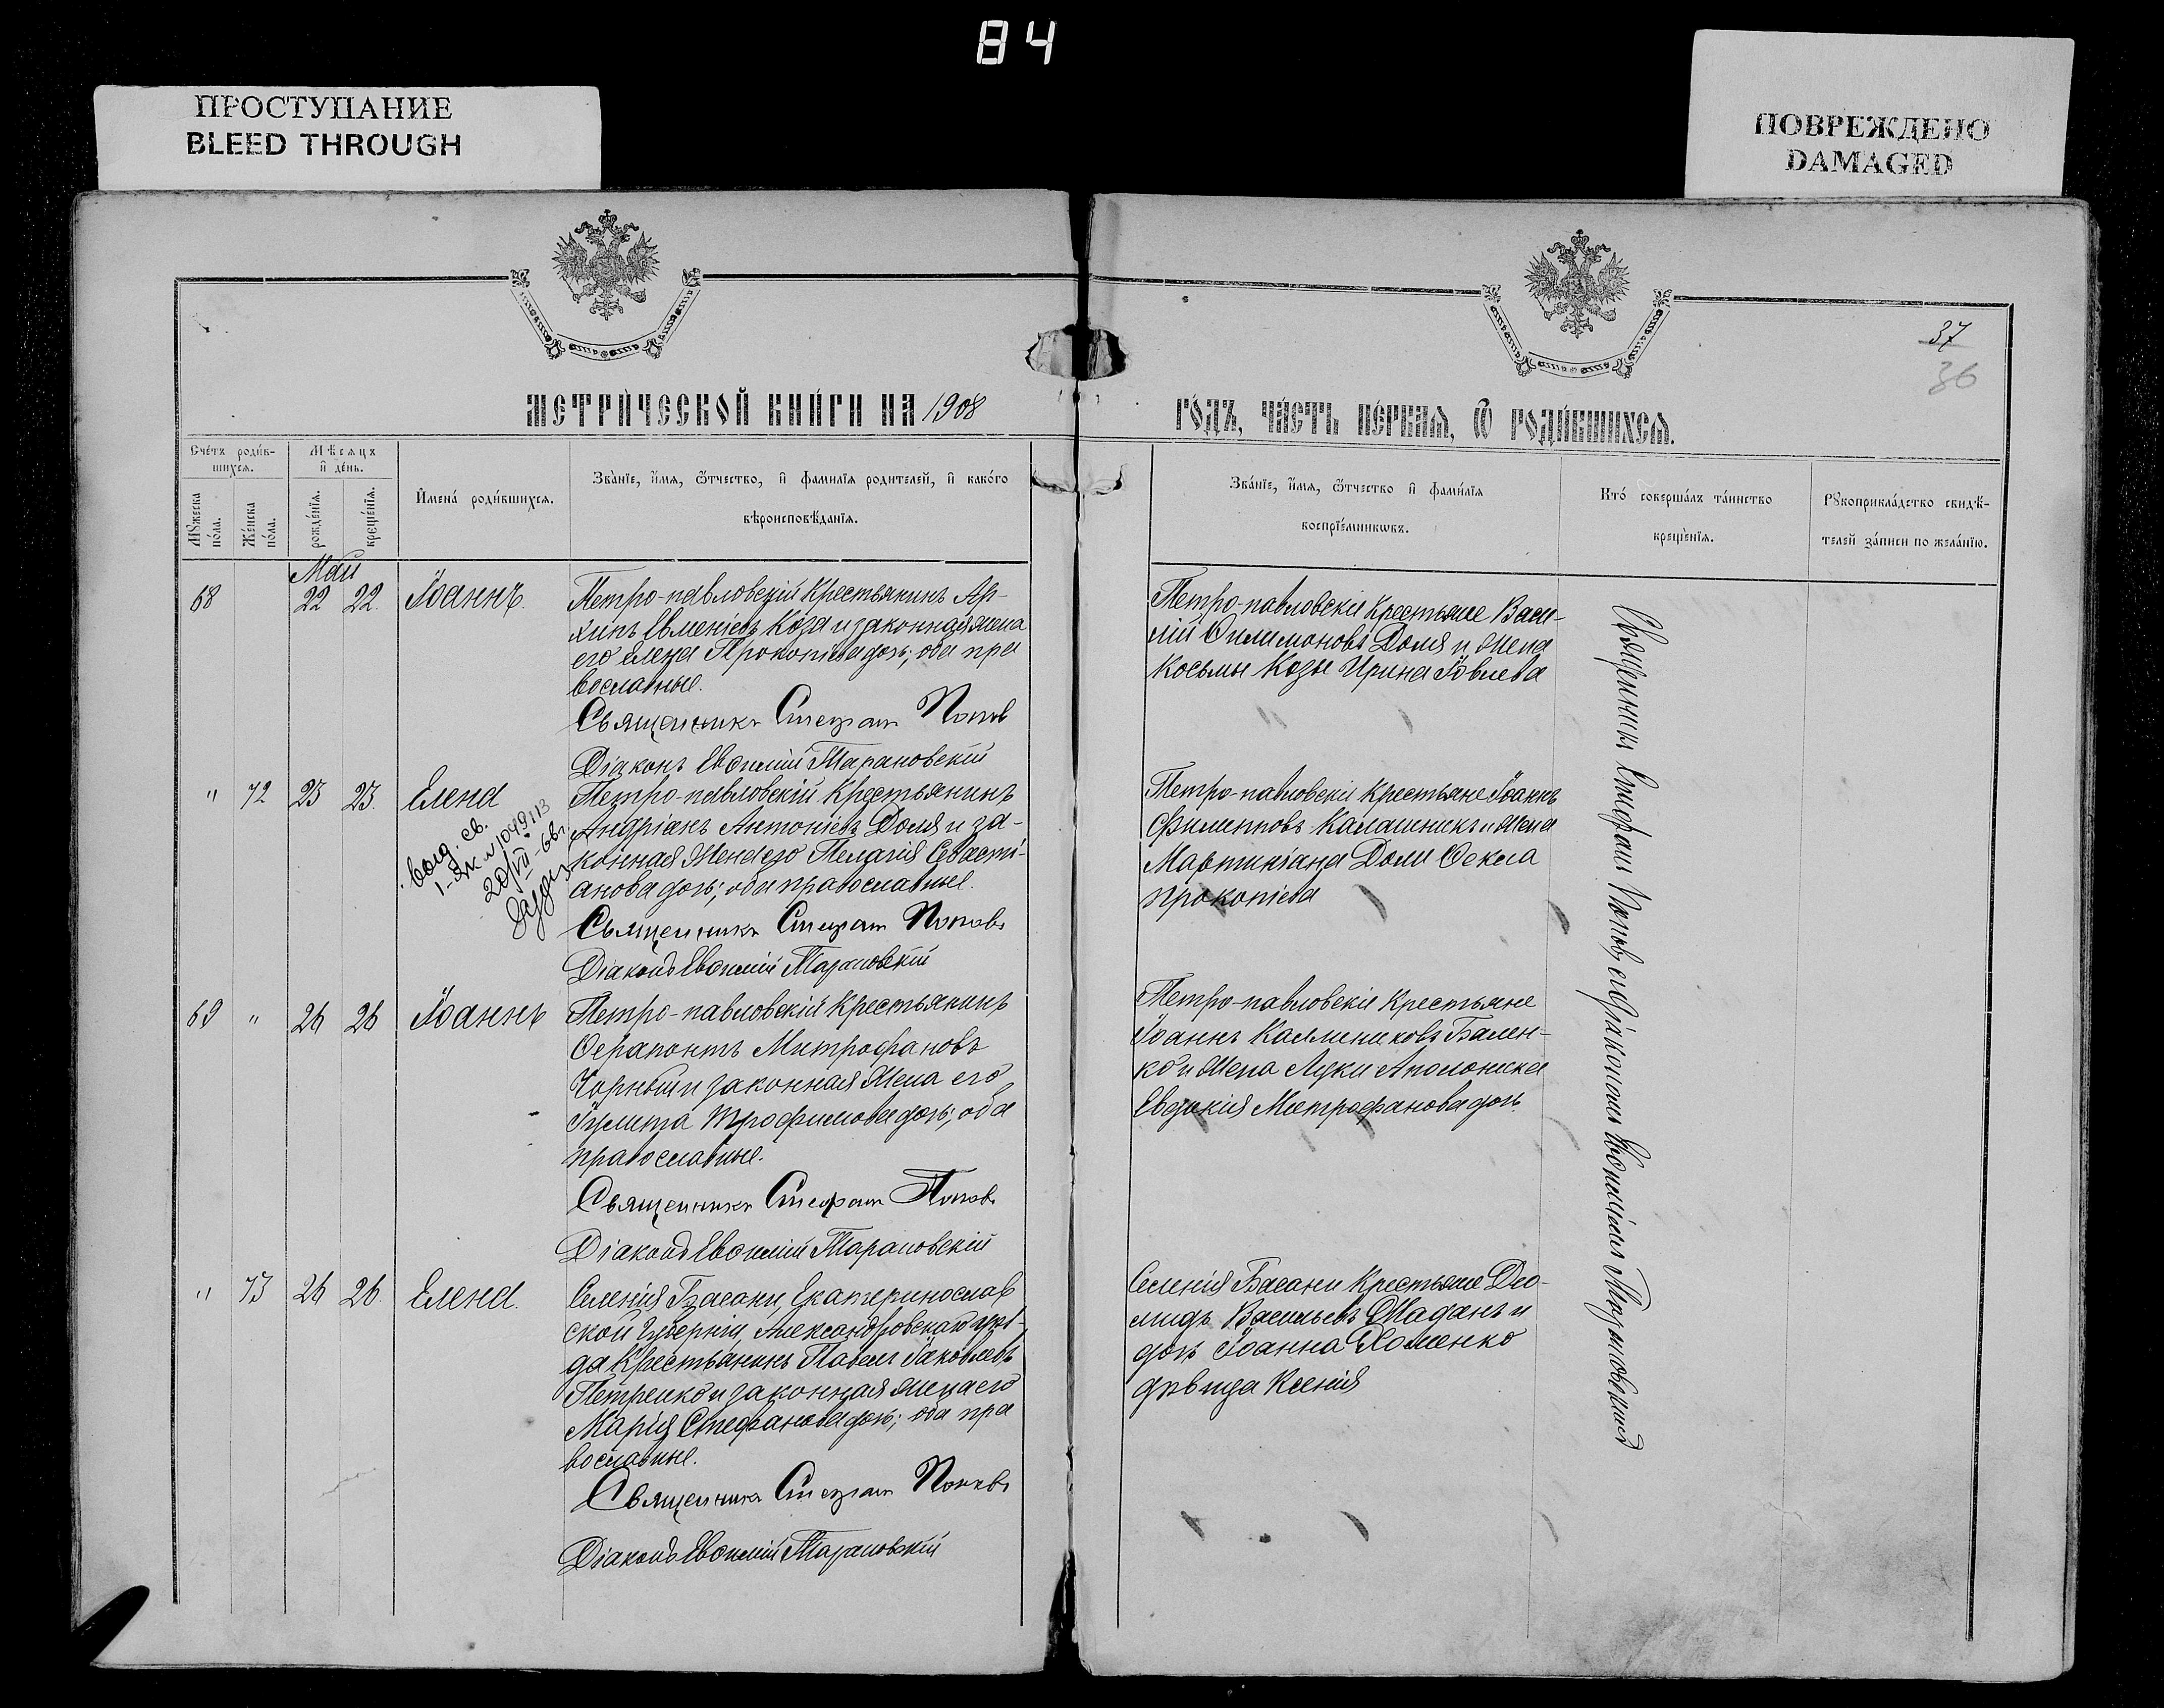 84
ПРОСТУПАНИЕ
BLEED THROUGH
ПОВРЕЖДЕНО
DAMAGED
37
36
МЕТРИ́ЧЕСКОЙ КНИ́ГИ НА 1908
ГО́ДЪ, ЧА́СТЬ ПЕ́РВАЯ, Ѿ РОДИ́ВШИХСЯ.
Сче́тъ роди́в-
шихся.
Мѣсяцъ
и҆ де́нь.
Мꙋжеска
по́ла.
Же́нска
по́ла.
рожде́нїѧ.
креще́нїѧ.
И҆мена̀ роди́вшихся.
Зва́нїе, и҆́мѧ, ѻ҆́тчество, и҆ фами́лїѧ роди́телей, и҆ како́гѡ
вѣроисповѣ́данїѧ.
Зва́нїе, и҆́мѧ, ѻ҆́тчество и҆ фами́лїѧ
воспрїе́мникѡвъ.
Кто̀ соверша́лъ та́инство
креще́нїѧ.
Рꙋкоприкла́дство свидѣ́-
телей за́писи по жела́нїю.
Май
68 22 22. Іоаннъ.
Петро-павловскій Крестьянинъ Ар-
хипъ Евменіевъ Коза и законная жена
его Елена Прокопіева дочь; оба пра
вославные.
Священникъ Стефанъ Попов
Діаконъ Евѳимій Тарановскій
Петро-павловскіе Крестьяне Васи-
лій Филимоновъ Доля и жена
Косьмы Козы Ирина Іовлева
" 72 23 23. Елена
выд. св.
Петро-павловскій Крестьянинъ
Андріанъ Антоніевъ Доля и за-
конная жена его Пелагія Севасті-
анова дочь; оба православные.
Священникъ Стефанъ Поповъ
Діаконъ Евѳимій Тарановскій
Петро-павловскіе Крестьяне Іоаннъ
Филипповъ Калашникъ и жена
Мартиніана Доли Ѳекла
Прокопіева
69 " 26 26 Іоаннъ
Петро-павловскій Крестьянинъ
Ѳерапонтъ Митрофановъ
Чорный и законная жена его
Іулита Трофимова дочь; оба
православные.
Священникъ Стефанъ Поповъ
Діаконъ Евѳимій Тарановскій
Петро-павловскіе Крестьяне
Іоаннъ Каллиниковъ Бален-
ко и жена Луки
Евдокія Митрофанова дочь.
" 73 26 26. Елена.
Селенія Басани, Екатеринослав
ской губерніи, Александровскаго уѣз-
да Крестьянинъ Павелъ Іаковлевъ
Петренко и законная жена его
Марія Стефанова дочь; оба пра
вославные.
Священникъ Стефанъ Поповъ
Діаконъ Евѳимій Тарановскій
Селенія Басани Крестьяне Діо-
мидъ Васильевъ Жаданъ и
дочь Іоанна Хоменко
дѣвица Ксенія
Священникъ Стефанъ Поповъ съ діакономъ Евѳиміемъ Тарановскимъ